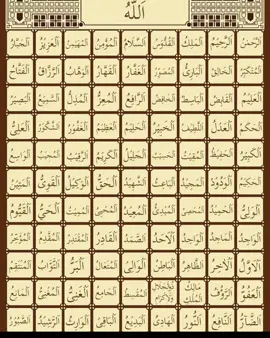 اَللّٰهُ
اَلرَّحْمٰنُ اَلرَّحِيْمُ اَلْمَلِكُ اَلْقُدُّوْسُ اَلسَّلَامُ اَلْمُؤْمِنُ اَلْمُهَيْمِنُ اَلْعَزِيْزُ اَلْجَبَّارُ
اَلْمُتَكَبِّرُ اَلْخَالِقُ اَلْبَارِئُ اَلْمُصَوِّرُ اَلْغَفَّارُ اَلْقَهَّارُ اَلْوَهَّابُ اَلرَّزَّاقُ اَلْفَتَّاحُ
اَلْعَلِيْمُ اَلْقَابِضُ اَلْبَاسِطُ اَلْخَافِضُ اَلرَّافِعُ اَلْمُعِزُّ اَلْمُذِلُّ اَلسَّمِيْعُ اَلْبَصِيْرُ
اَلْحَكَمُ اَلْعَدْلُ اَللَّطِيْفُ اَلْخَبِيْرُ اَلْحَلِيْمُ اَلْعَظِيْمُ اَلْغَفُوْرُ اَلشَّكُوْرُ اَلْعَلِيُّ
اَلْكَبِيْرُ اَلْحَفِيْظُ اَلْمُقِيْتُ اَلْحَسِيْبُ اَلْجَلِيْلُ اَلْكَرِيْمُ اَلرَّقِيْبُ اَلْمُجِيْبُ اَلْوَاسِعُ
اَلْحَكِيْمُ اَلْوَدُوْدُ اَلْمَجِيْدُ اَلْبَاعِثُ اَلشَّهِيْدُ اَلْحَقُّ اَلْوَكِيْلُ اَلْقَوِيُّ اَلْمَتِيْنُ
اَلْوَلِيُّ اَلْحَمِيْدُ اَلْمُحْصِي اَلْمُبْدِئُ اَلْمُعِيْدُ اَلْمُحْيِي اَلْمُمِيْتُ اَلْحَيُّ اَلْقَيُّوْمُ
اَلْوَاجِدُ اَلْمَاجِدُ اَلْوَاحِدُ اَلْأَحَدُ اَلصَّمَدُ اَلْقَادِرُ اَلْمُقْتَدِرُ اَلْمُقَدِّمُ اَلْمُؤَخِّرُ
اَلْأَوَّلُ اَلْآخِرُ اَلظَّاهِرُ اَلْبَاطِنُ اَلْوَالِي اَلْمُتَعَالِ اَلْبَرُّ اَلتَّوَّابُ اَلْمُنْتَقِمُ
اَلْعَفُوُّ اَلرَّؤُوْفُ مَالِكُ الْمُلْكِ ذُوالْجَلَالِ وَالْإِكْرَامِ اَلْمُقْسِطُ اَلْجَامِعُ اَلْغَنِيُّ اَلْمُغْنِي اَلْمَانِعُ
اَلضَّارُّ اَلنَّافِعُ اَلنُّوْرُ اَلْهَادِي اَلْبَدِيْعُ اَلْبَاقِي اَلْوَارِثُ اَلرَّشِيْدُ اَلصَّبُوْرُ